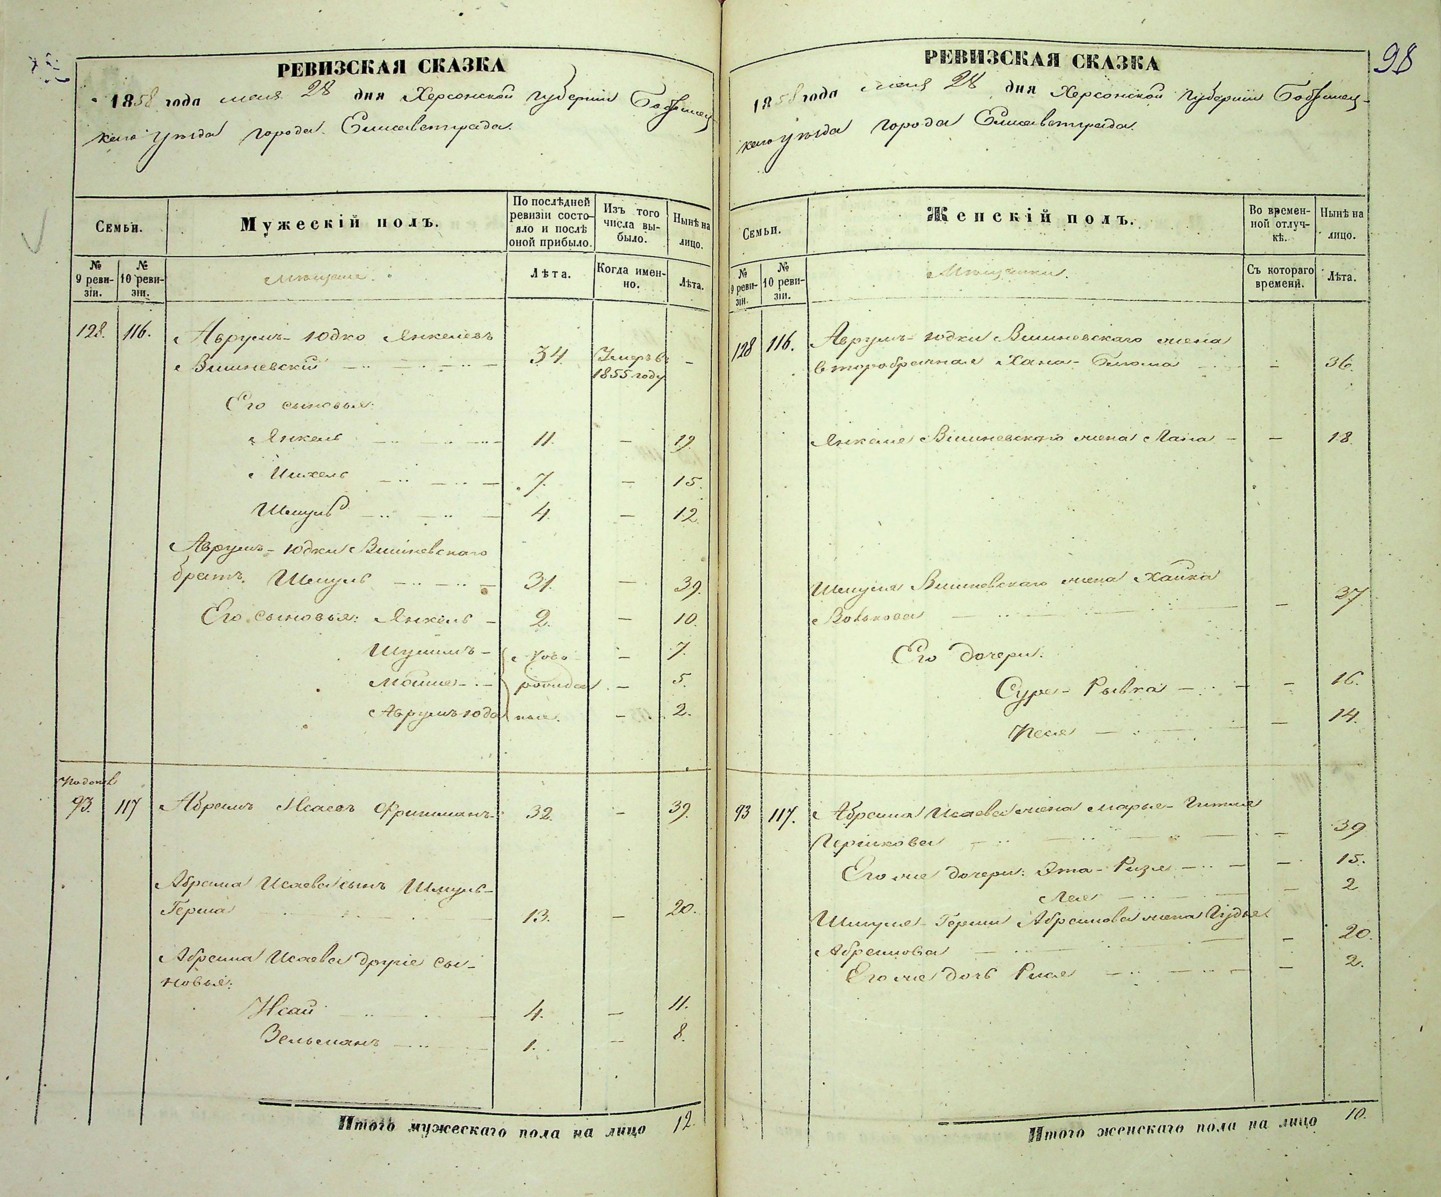 РЕВИЗСКАЯ СКАЗКА
1858 года мая 28 дня Херсонской Губернiи Бобринец-
каго уѣзда города Елисаветграда.
Семьи.
Мужескiй полъ.
По послѣдней ревизiи состо-яло и послѣ оной прибыло.
Изъ того числа вы-было.
Нынѣ на лицо.
№ 9 реви-зiи.
№ 10 реви-зiи.
Мѣщане.
Лѣта.
Когда имен-но.
Лѣта.
128. 116. Аврумъ-Юдко Янкелевъ
Вишневскiй 34. Умеръ въ 1855 году —
Его сыновья:
Янкель 11. — 19
Михель 7. — 15.
Шмуль 4. — 12.
Аврумъ-Юдки Вишневскаго
братъ Шмуль 31. — 39.
Его сыновья: Янкель 2. — 10.
Шулимъ — 7.
Мойше — 5.
Аврумъ Юда — 2.
ново
рожден
ные.
93. 117 Абрамъ Исаевъ Фришманъ 32. — 39.
Абрама Исаева сынъ Шмуль-
Герша 13. — 20.
Абрама Исаева другiе сы-
новья:
Исай 4. — 11.
Зельманъ 1. — 8.
Итого мужескаго пола на лицо 12.
98
РЕВИЗСКАЯ СКАЗКА
1858 года мая 28 дня Херсонской Губернiи Бобринец-
каго уѣзда города Елисаветграда.
Семьи.
Женскiй полъ.
Во времен-ной отлуч-кѣ.
Нынѣ на лицо.
№ 9 реви-зiи.
№ 10 реви-зiи.
Мѣщанки.
Съ котораго времени.
Лѣта.
128 116. Аврумъ-Юдки Вишневскаго жена
второбрачная Хана-Блюма — 36.
Янкеля Вишневскаго жена — 18.
Шмуля Вишневскаго жена Хайка
Волькова — 37
Его дочери:
Сура-Рывка — 16.
Песя — 14.
93 117. Абрама Исаева жена Марья-Гитля
Гершкова — 39
Его же дочери: Эта-Ризя — 15.
Лея — 2
Шмуля-Герши Абрамова жена
Абрамова — 20.
Его же дочь Рися — 2.
Итого женскаго пола на лицо 10.